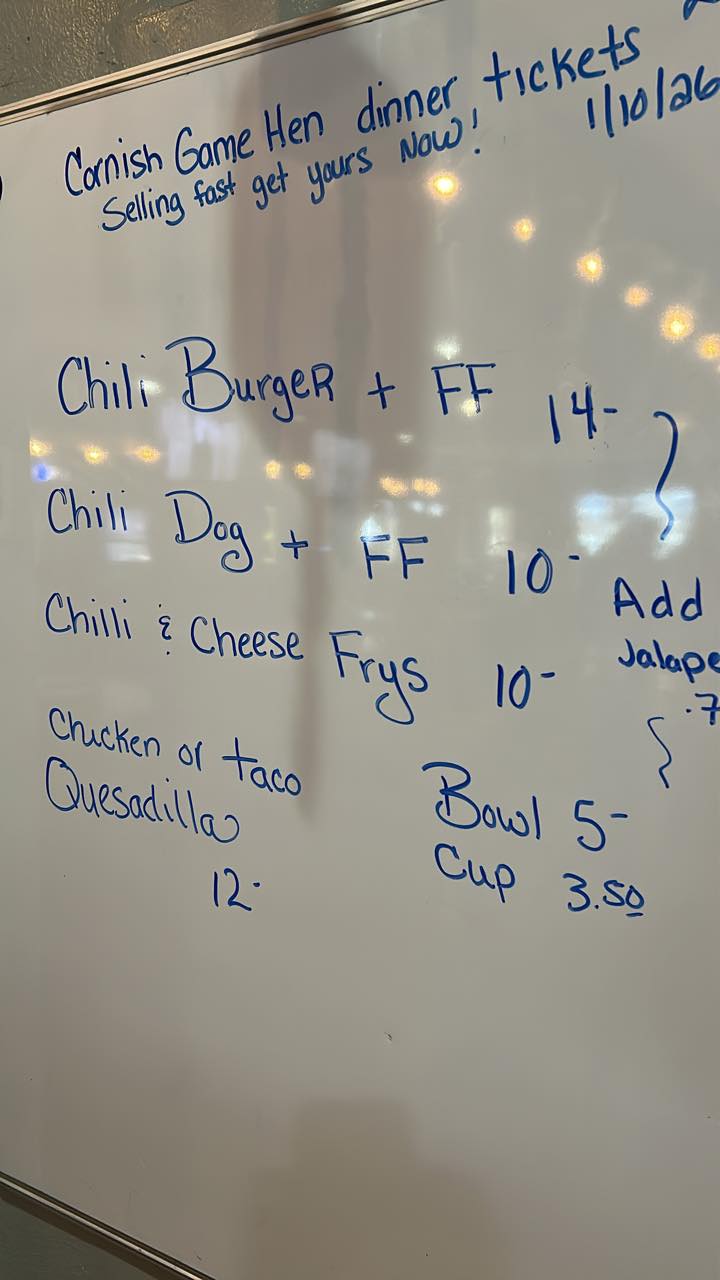 Cornish Game Hen dinner tickets
1/10/26
Selling fast get yours Now!
Chili Burger + FF 14-
Chili Dog + FF 10-
Chilli & Cheese Frys 10-
Add
Jalape
.7
Chicken or taco
Quesadilla
12-
Bowl 5-
Cup 3.50